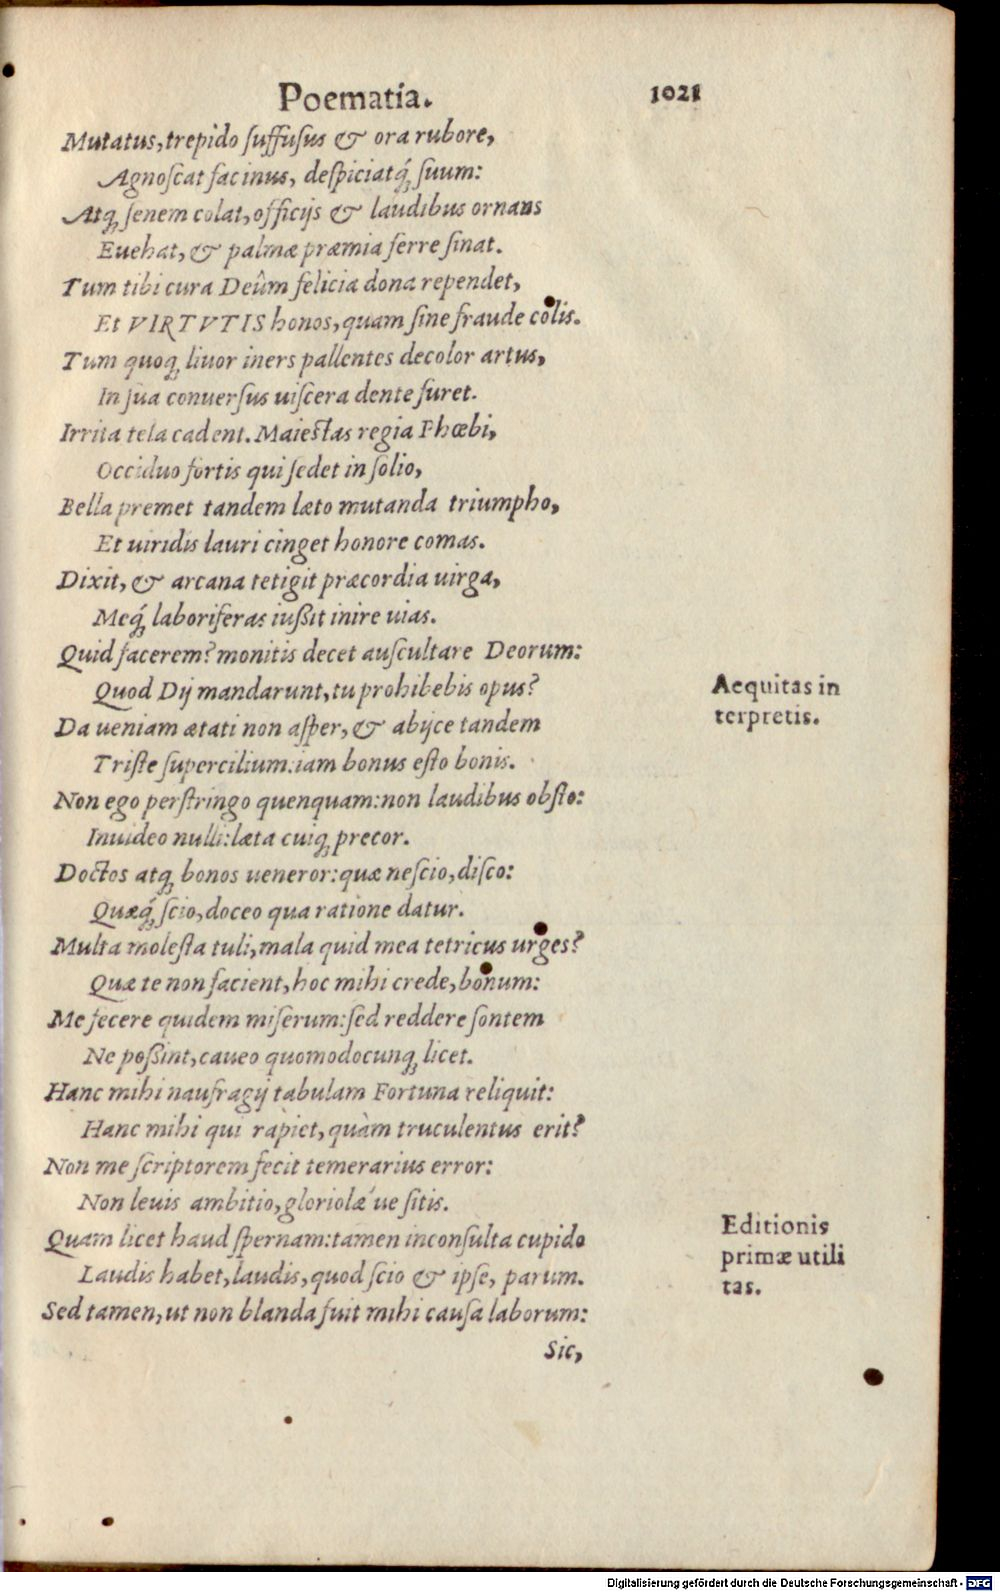 Poematia. 1021
Mutatus, trepido ſuffuſus & ora rubore,
Agnoſcat facinus, deſpiciatq́; ſuum:
Atq; ſenem colat, officijs & laudibus ornans
Euehat, & palmæ præmia ferre ſinat.
Tum tibi cura Deûm felicia dona rependet,
Et VIRTVTIS honos, quam ſine fraude colis.
Tum quoq; liuor iners pallentes decolor artus,
In ſua conuerſus uiſcera dente furet.
Irrita tela cadent. Maieſtas regia Phœbi,
Occiduo fortis qui ſedet in ſolio,
Bella premet tandem læto mutanda triumpho,
Et uiridis lauri cinget honore comas.
Dixit, & arcana tetigit præcordia uirga,
Meq́; laboriferas iuſsit inire uias.
Quid facerem? monitis decet auſcultare Deorum:
Quod Dij mandarunt, tu prohibebis opus?
Aequitas in
terpretis.
Da ueniam ætati non aſper, & abijce tandem
Triſte ſupercilium: iam bonus eſto bonis.
Non ego perſtringo quenquam: non laudibus obſto:
Inuideo nulli: læta cuiq; precor.
Doctos atq; bonos ueneror: quæ neſcio, diſco:
Quæq́; ſcio, doceo qua ratione datur.
Multa moleſta tuli, mala quid mea tetricus urges?
Quæ te non facient, hoc mihi crede, bonum:
Me fecere quidem miſerum: ſed reddere ſontem
Ne poſsint, caueo quomodocunq; licet.
Hanc mihi naufragij tabulam Fortuna reliquit:
Hanc mihi qui rapiet, quàm truculentus erit?
Non me ſcriptorem fecit temerarius error:
Non leuis ambitio, gloriolæ´ue ſitis.
Quam licet haud ſpernam: tamen inconſulta cupido
Laudis habet, laudis, quod ſcio & ipſe, parum.
Editionis
primæ utili
tas.
Sed tamen, ut non blanda fuit mihi cauſa laborum:
Sic,
Digitalisierung gefördert durch die Deutsche Forschungsgemeinschaft - DFG